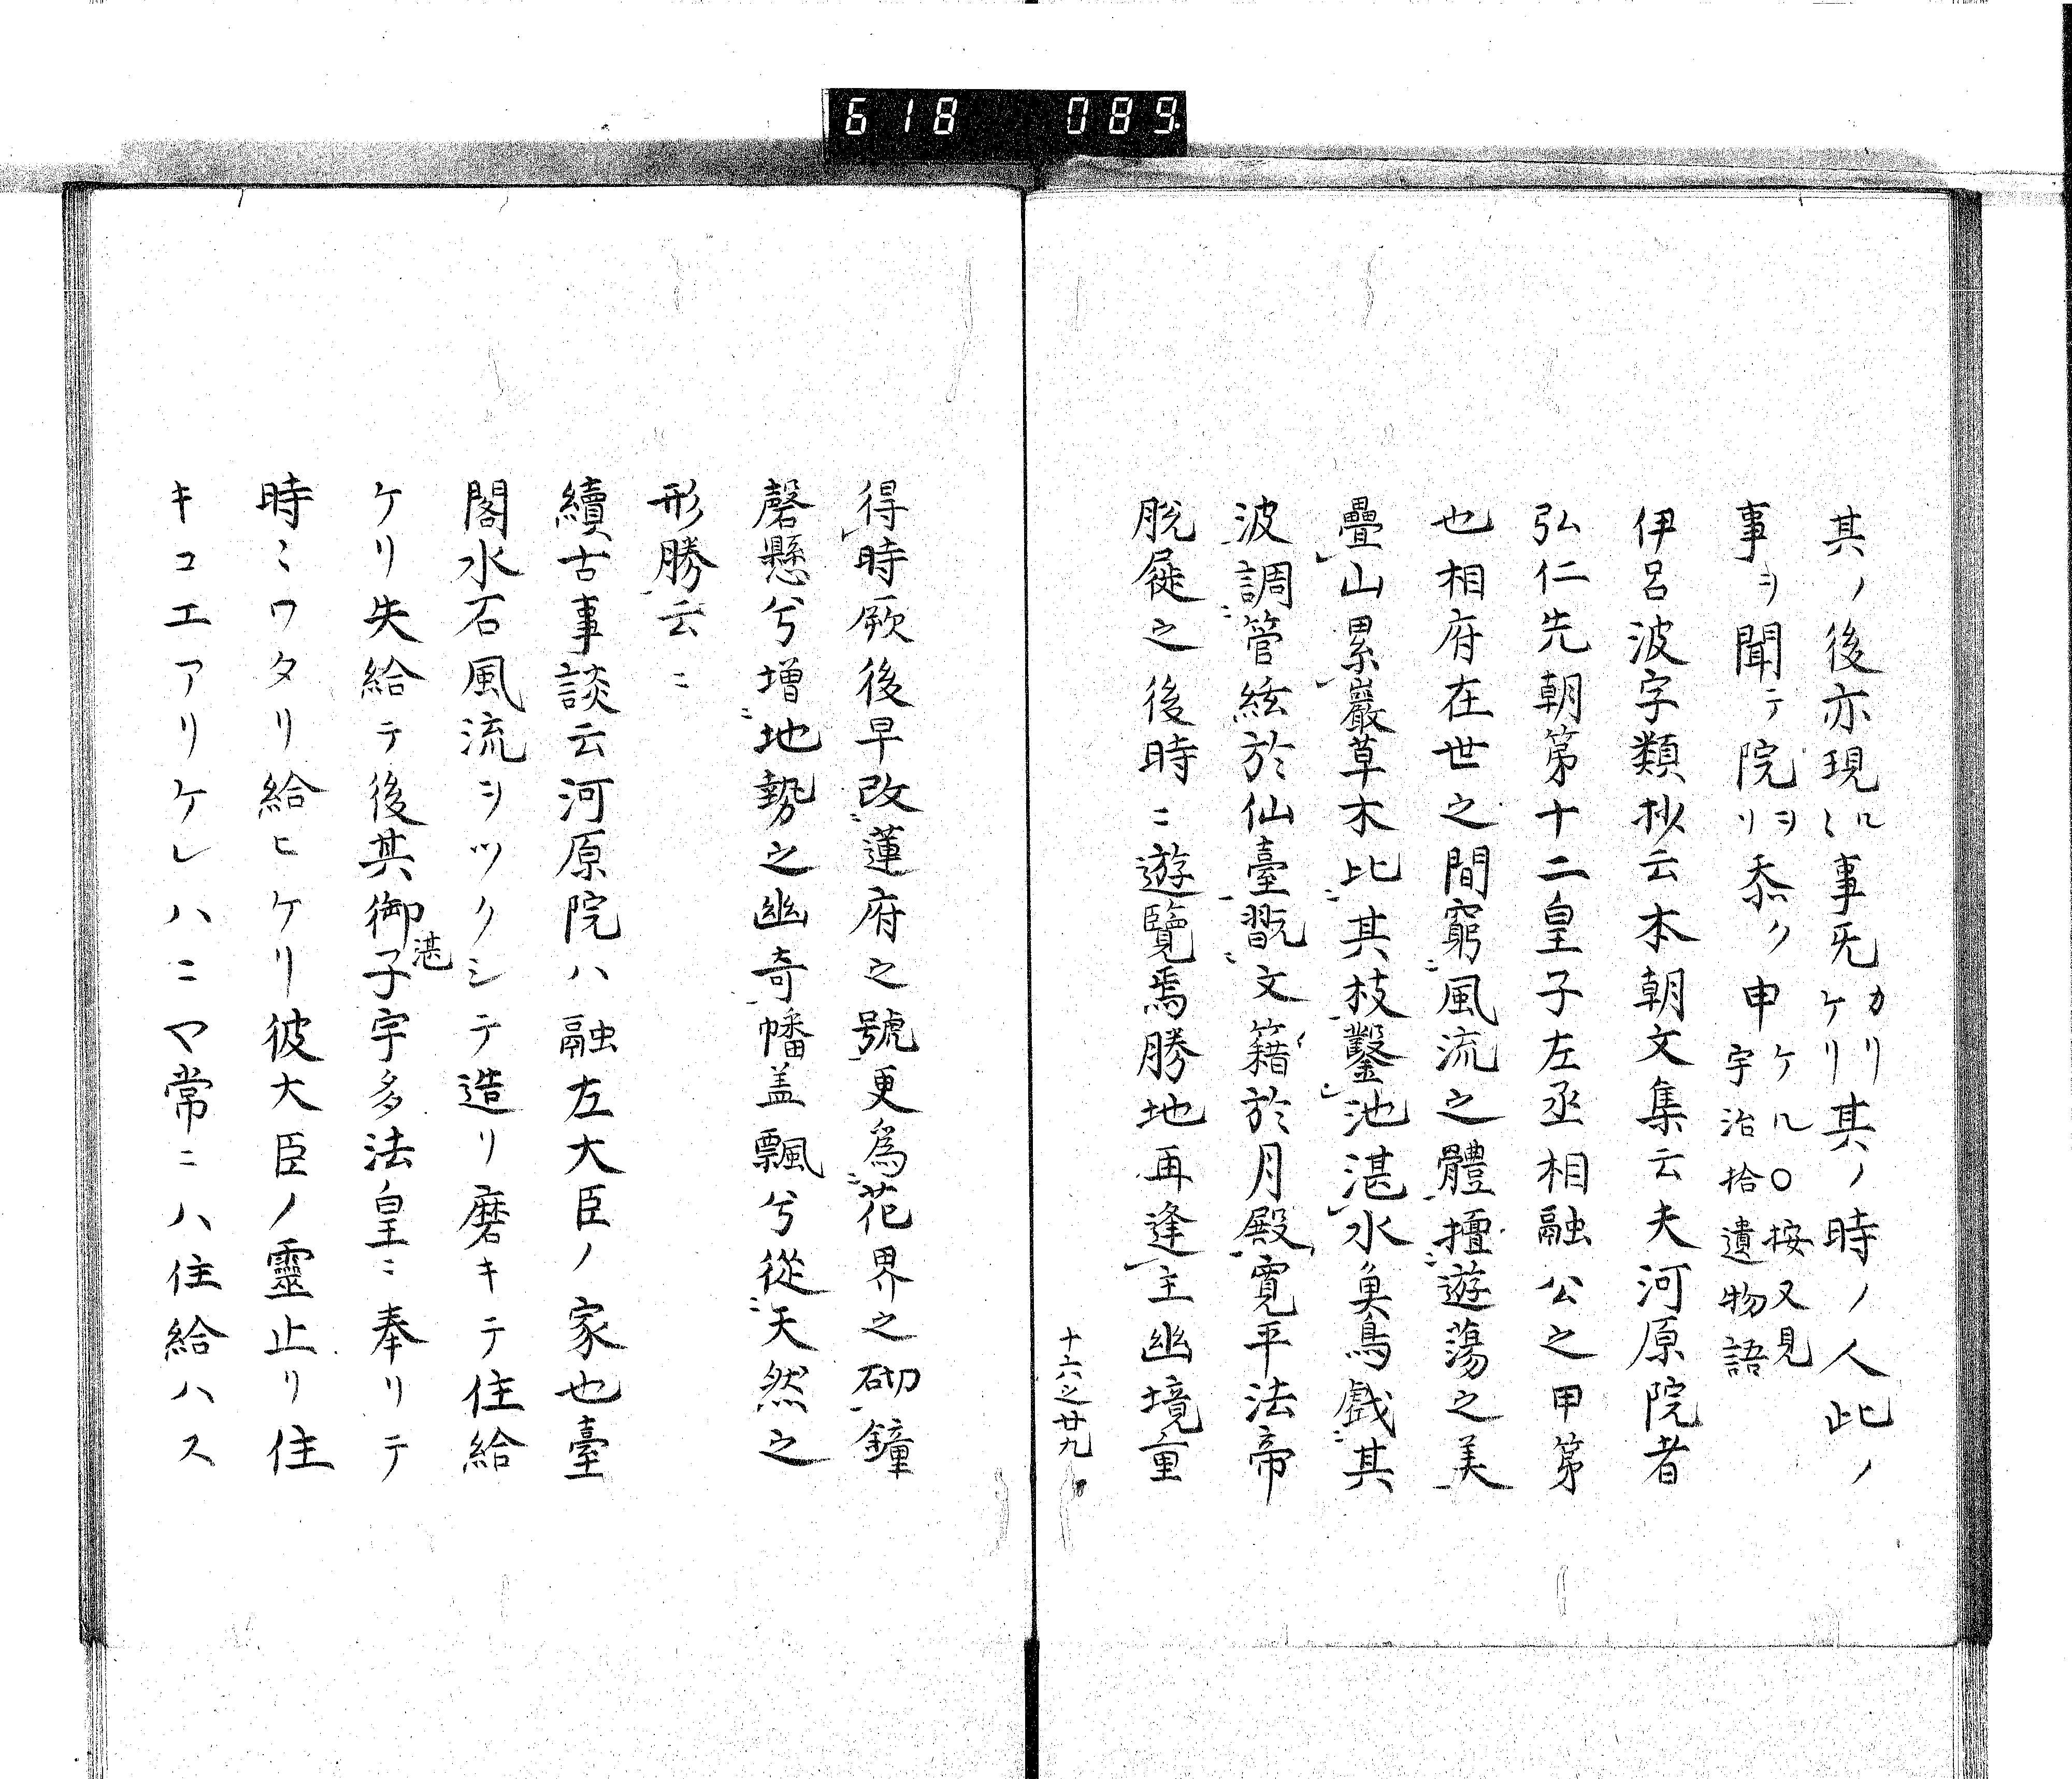 618 089.
其ノ後亦現ルヽ事旡カリケリ其ノ時ノ人此ノ
事ヲ聞テ院ヲソ忝ク申ケル〇按又見宇治拾遺物語
伊呂波字類抄云本朝文集云夫河原院者
弘仁先朝第十二皇子左丞相融公之甲第
也相府在世之間窮風流之體擅遊蕩之美
疊山累巖草木比其枝鑿池湛水魚鳥戲其
波調管絃於仙臺翫文籍於月殿寛平法帝
脱屣之後時ニ遊覽焉勝地再逢主幽境重
十六之廿九
得時厥後早改蓮府之號更爲花界之砌鐘
磬懸兮增地勢之幽奇幡盖飄兮從天然之
形勝云ニ
續古事談云河原院ハ融左大臣ノ家也臺
閣水石風流ヲツクシテ造リ磨キテ住給
ケリ失給テ後其御子湛宇多法皇ニ奉リテ
時ミワタリ給ヒケリ彼大臣ノ靈止リ住
キコエアリケレハニマ常ニハ住給ハス